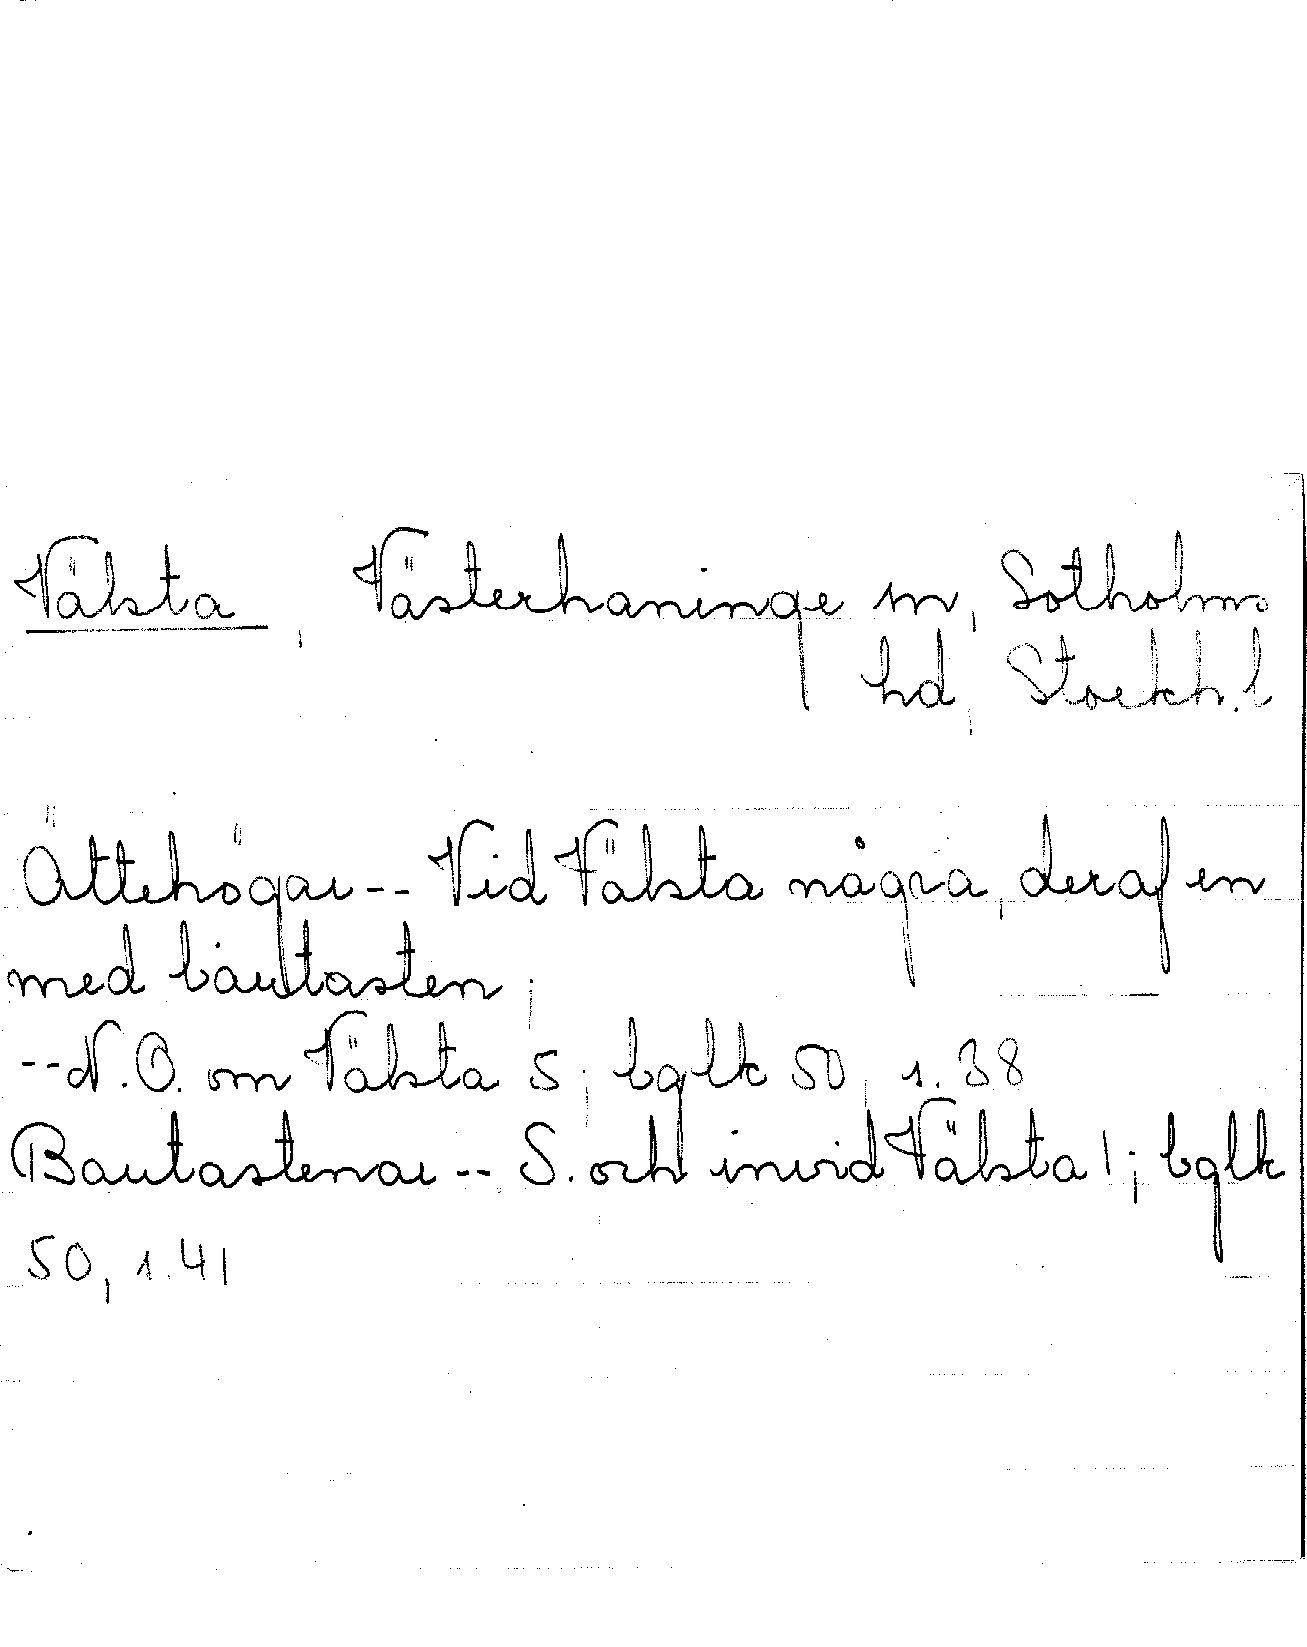 Välsta, Västerhaninge sn, Sotholms
hd, Stockh. l
Ättehögar -- Vid Välsta några, deraf en
med bautasten;
-- N.O. om Välsta 5; bglk 50, s. 38
Bautastenar -- S. och invid Välsta 1; bglk
50, s. 41